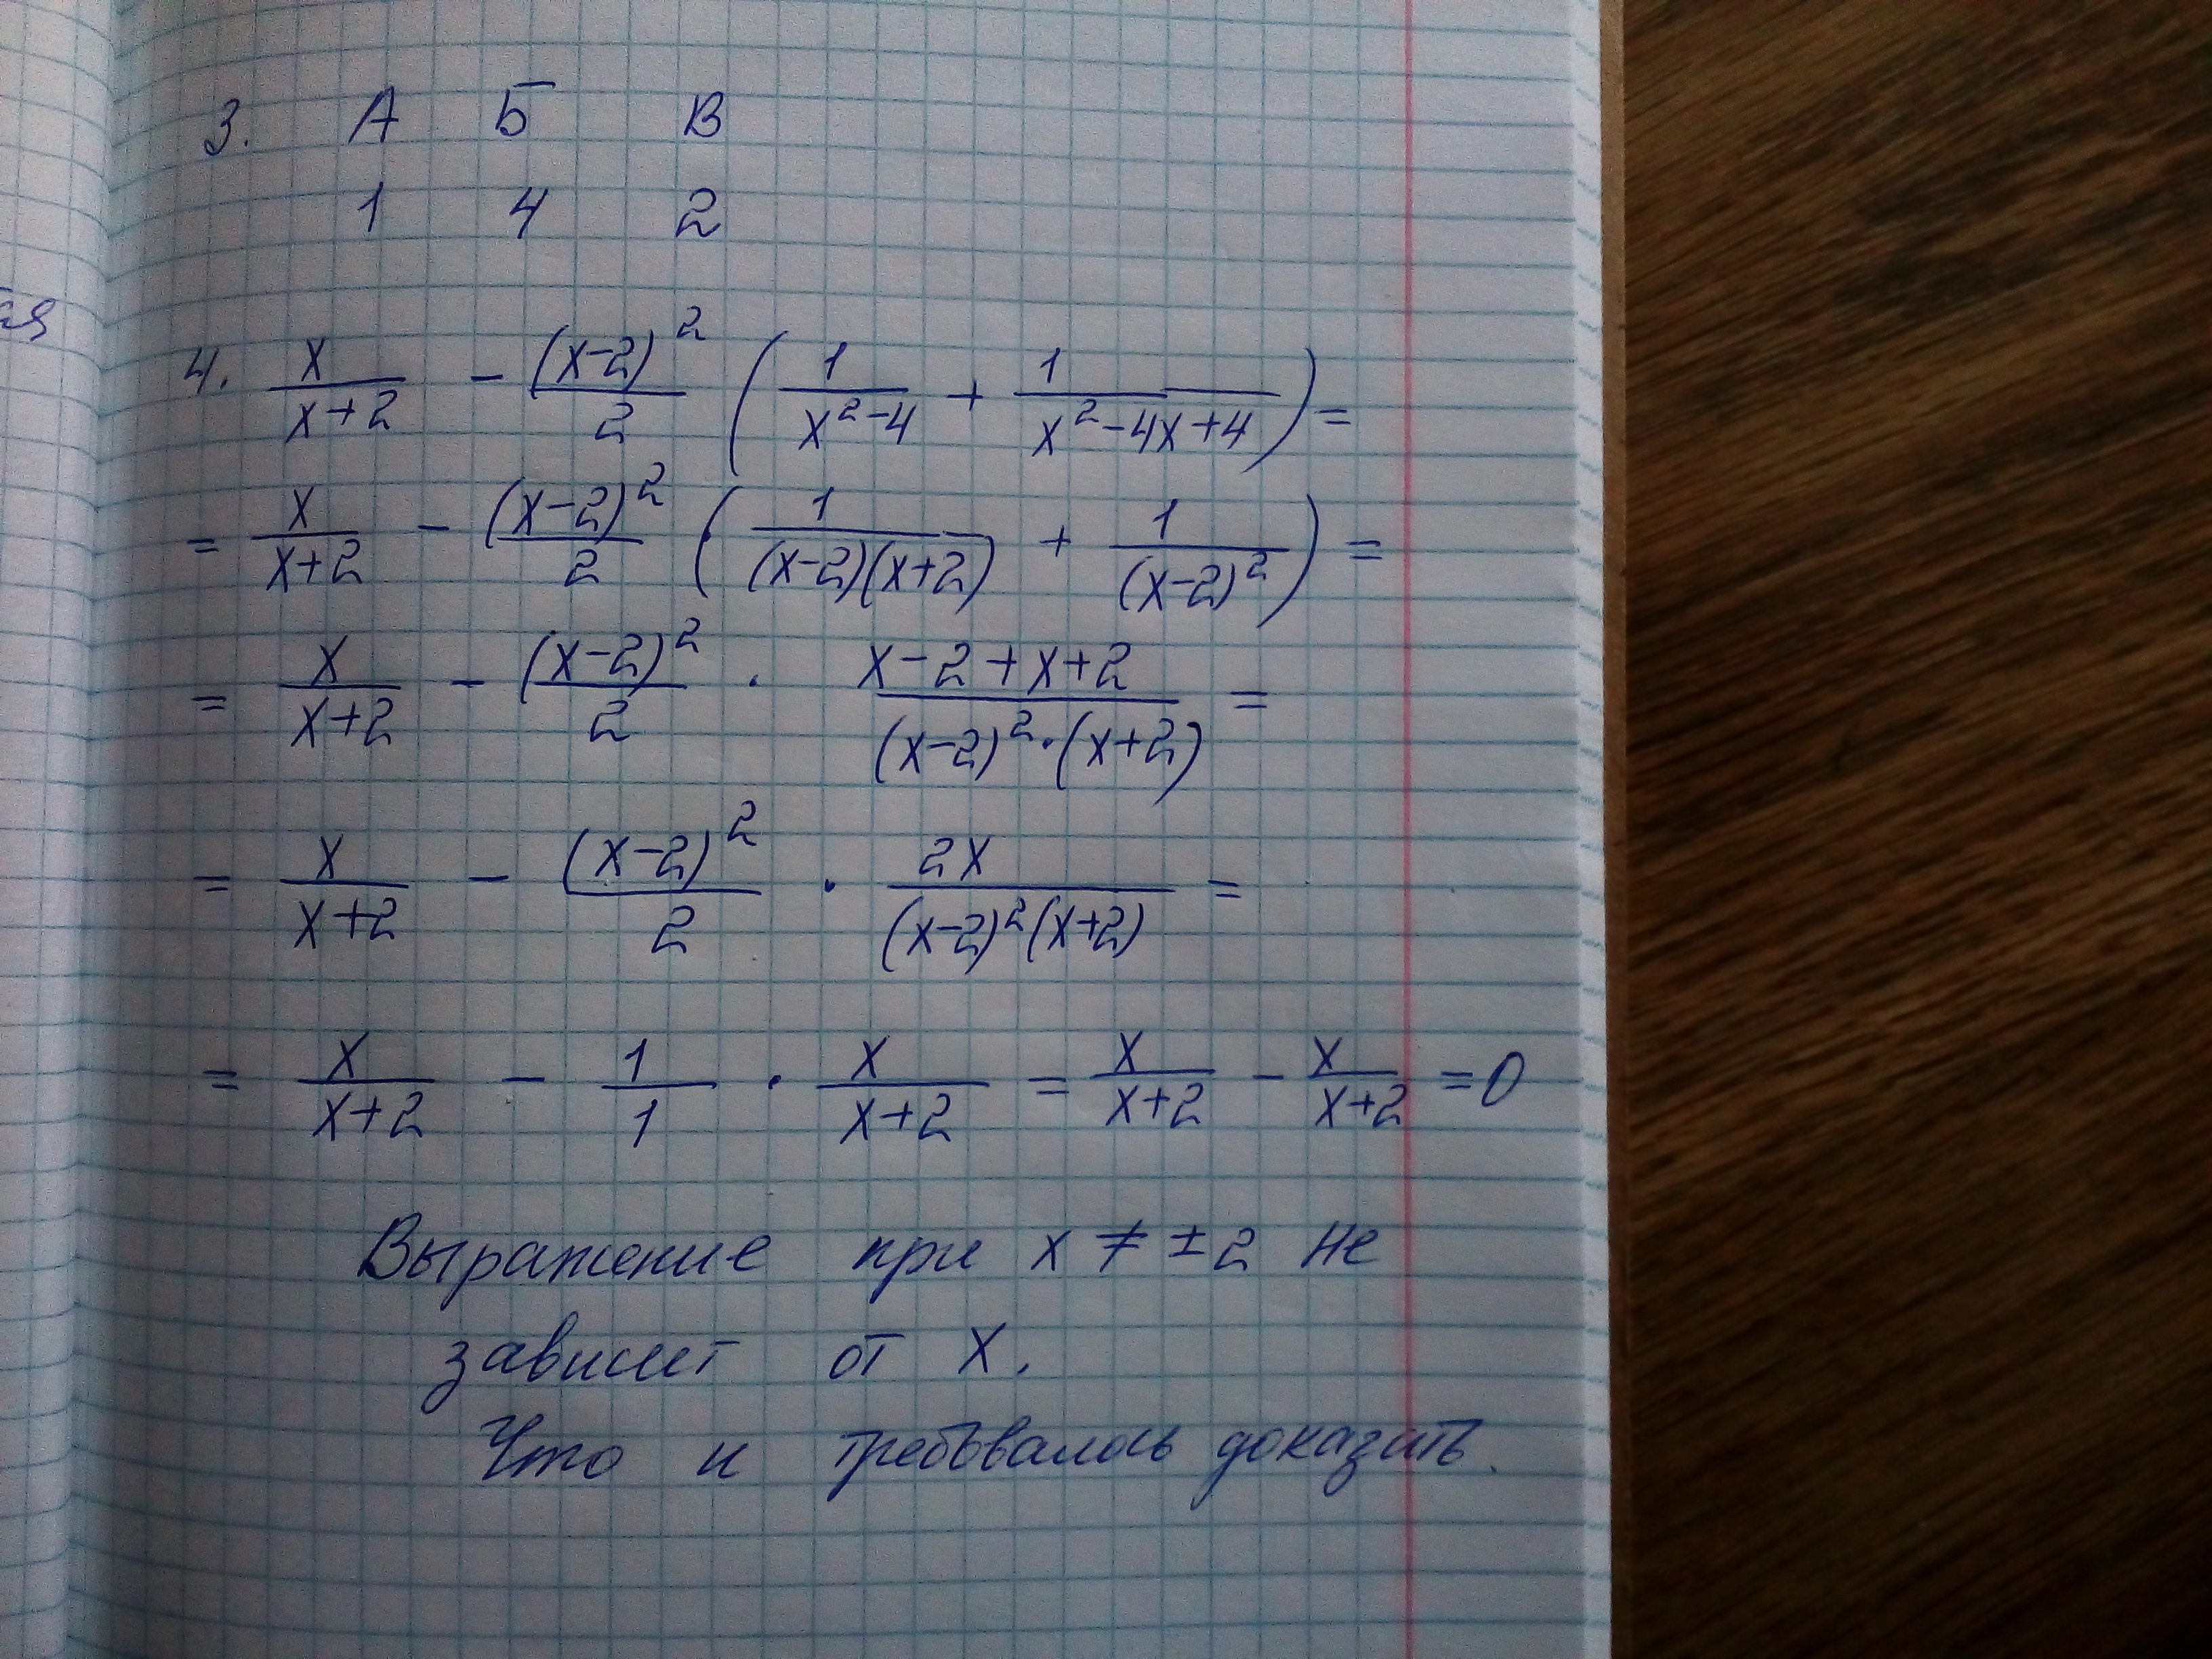 ая
3. А Б В
1 4 2
4. x/(x+2) - (x-2)²/2 (1/(x²-4) + 1/(x²-4x+4)) =
= x/(x+2) - (x-2)²/2 (1/((x-2)(x+2)) + 1/(x-2)²) =
= x/(x+2) - (x-2)²/2 · (x-2+x+2)/((x-2)²·(x+2)) =
= x/(x+2) - (x-2)²/2 · 2x/((x-2)²(x+2)) =
= x/(x+2) - 1/1 · x/(x+2) = x/(x+2) - x/(x+2) = 0
Выражение при x ≠ ±2 не
зависит от x.
Что и требовалось доказать.